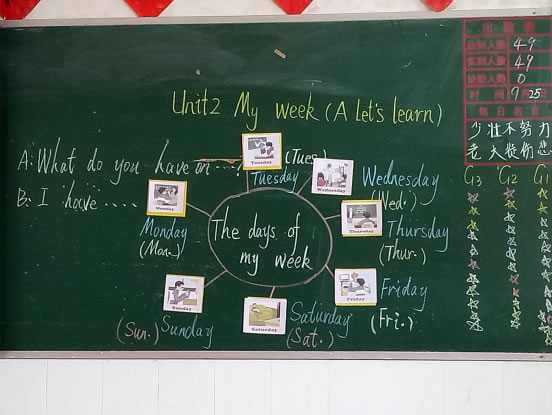 出勤表
应到人数 49
实到人数 49
缺勤人数 0
时间 9月25日
每日名言
少壮不努力
老大徒伤悲
G3 G2 G1
Unit2 My week (A Let's learn)
A: What do you have on ...?
B: I have ....
The days of
my week
Monday
Monday
(Mon.)
Tuesday
(Tues.)
Tuesday
Wednesday
Wednesday
(Wed.)
Thursday
Thursday
(Thur.)
Friday
Friday
(Fri.)
Saturday
Saturday
(Sat.)
Sunday
Sunday
(Sun.)